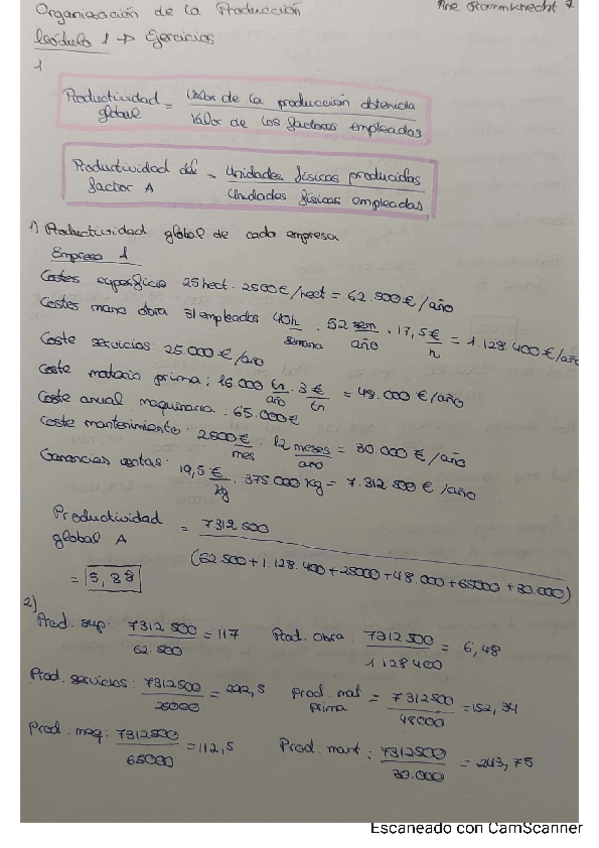 Organización de la Producción
Are Rommknecht
Módulo 1 → Ejercicios
1
Productividad global = Valor de la producción obtenida / Valor de los factores empleados
Productividad del factor A = Unidades físicas producidas / Unidades físicas empleadas
1) Productividad global de cada empresa
Empresa 1
Costes superficie 25 hect · 2500 €/hect = 62.500 €/año
Costes mano obra 31 empleados · 40 h/semana · 52 sem/año · 17,5 €/h = 1.128.400 €/año
Coste servicios: 25.000 €/año
Coste materia prima: 16.000 tn/año · 3 €/tn = 48.000 €/año
Coste anual maquinaria: 65.000 €
Coste mantenimiento: 2500 €/mes · 12 meses/año = 30.000 €/año
Ganancias ventas: 19,5 €/kg · 375 000 kg = 7.312 500 €/año
Productividad global A = 7312500 / (62 500 + 1.128.400 + 25000 + 48.000 + 65000 + 30.000)
= 5,38
2)
Prod. sup: 7312 500 / 62.500 = 117 Prod. obra: 7312 500 / 1 128 400 = 6,48
Prod. servicios: 7312500 / 25000 = 292,5 Prod. mat prima = 7312500 / 48000 = 152,34
Prod. maq: 7312500 / 65000 = 112,5 Prod. mant: 7312500 / 30.000 = 243,75
Escaneado con CamScanner